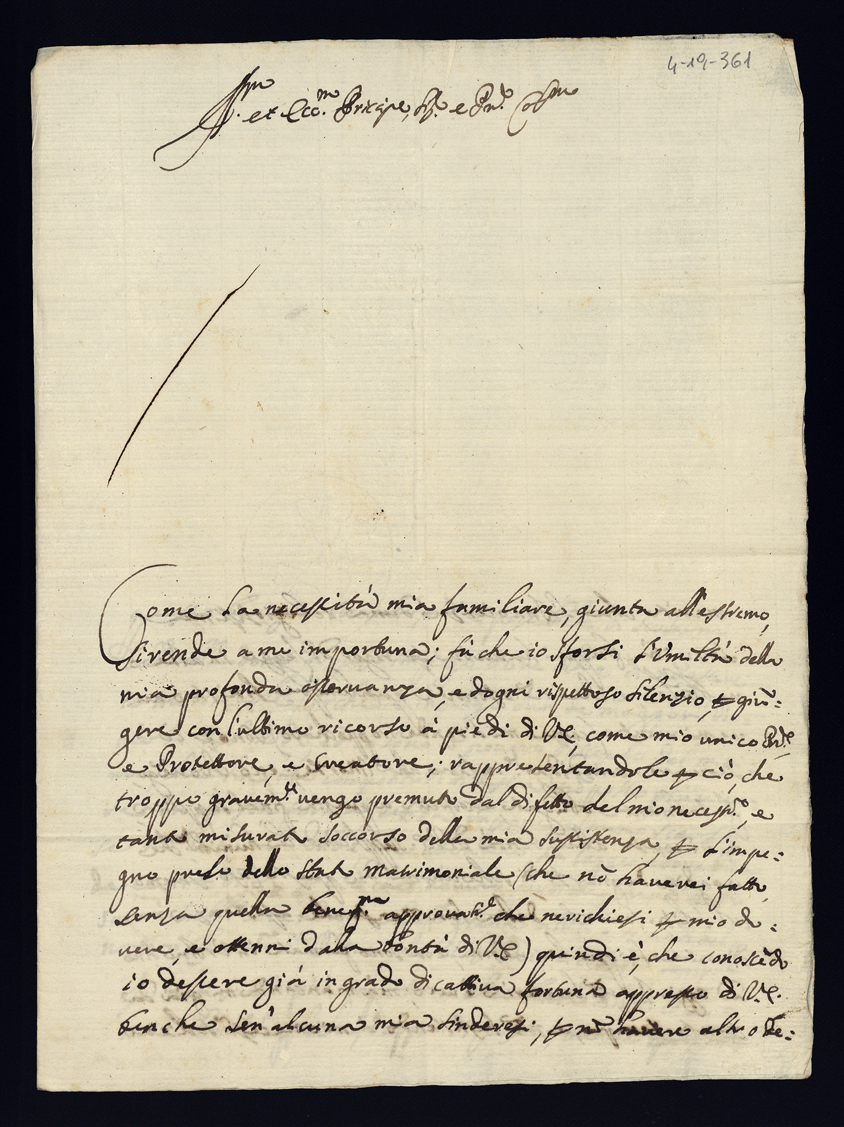 4-19-361
Ill.mo et Ecc.mo Prīcipe, Sig.r e Pn̄e Col.mo
Come la necessità mia familiare, giunta all'estremo,
si rende a me importuna; fù che io sforsi l'Umiltà della
mia profonda osservanza, e d'ogni rispettoso silenzio, ꝑ giū=
gere con l'ultimo ricorso à piedi di V.E., come mio unico Pn̄e,
e Protettore, e Creatore; rappresentandole ꝑ ciò, che
troppo gravem.te vengo premuto dal difetto del mio necess.o, e
tanto misurato soccorso della mia sussistenza, ꝑ l'impe=
gno preso dello stato matrimoniale (che nō haverei fatto,
senza quella benig.ma approvat.e che ne richiesi ꝑ mio do=
vere, e ottenni dalla bontà di V.E.) quindi è, che conoscēdo
io d'essere già in grado di cattiva fortuna appresso di V.E.
benche sen'alcuna mia sinderesi, ꝑ nō havere altro de=